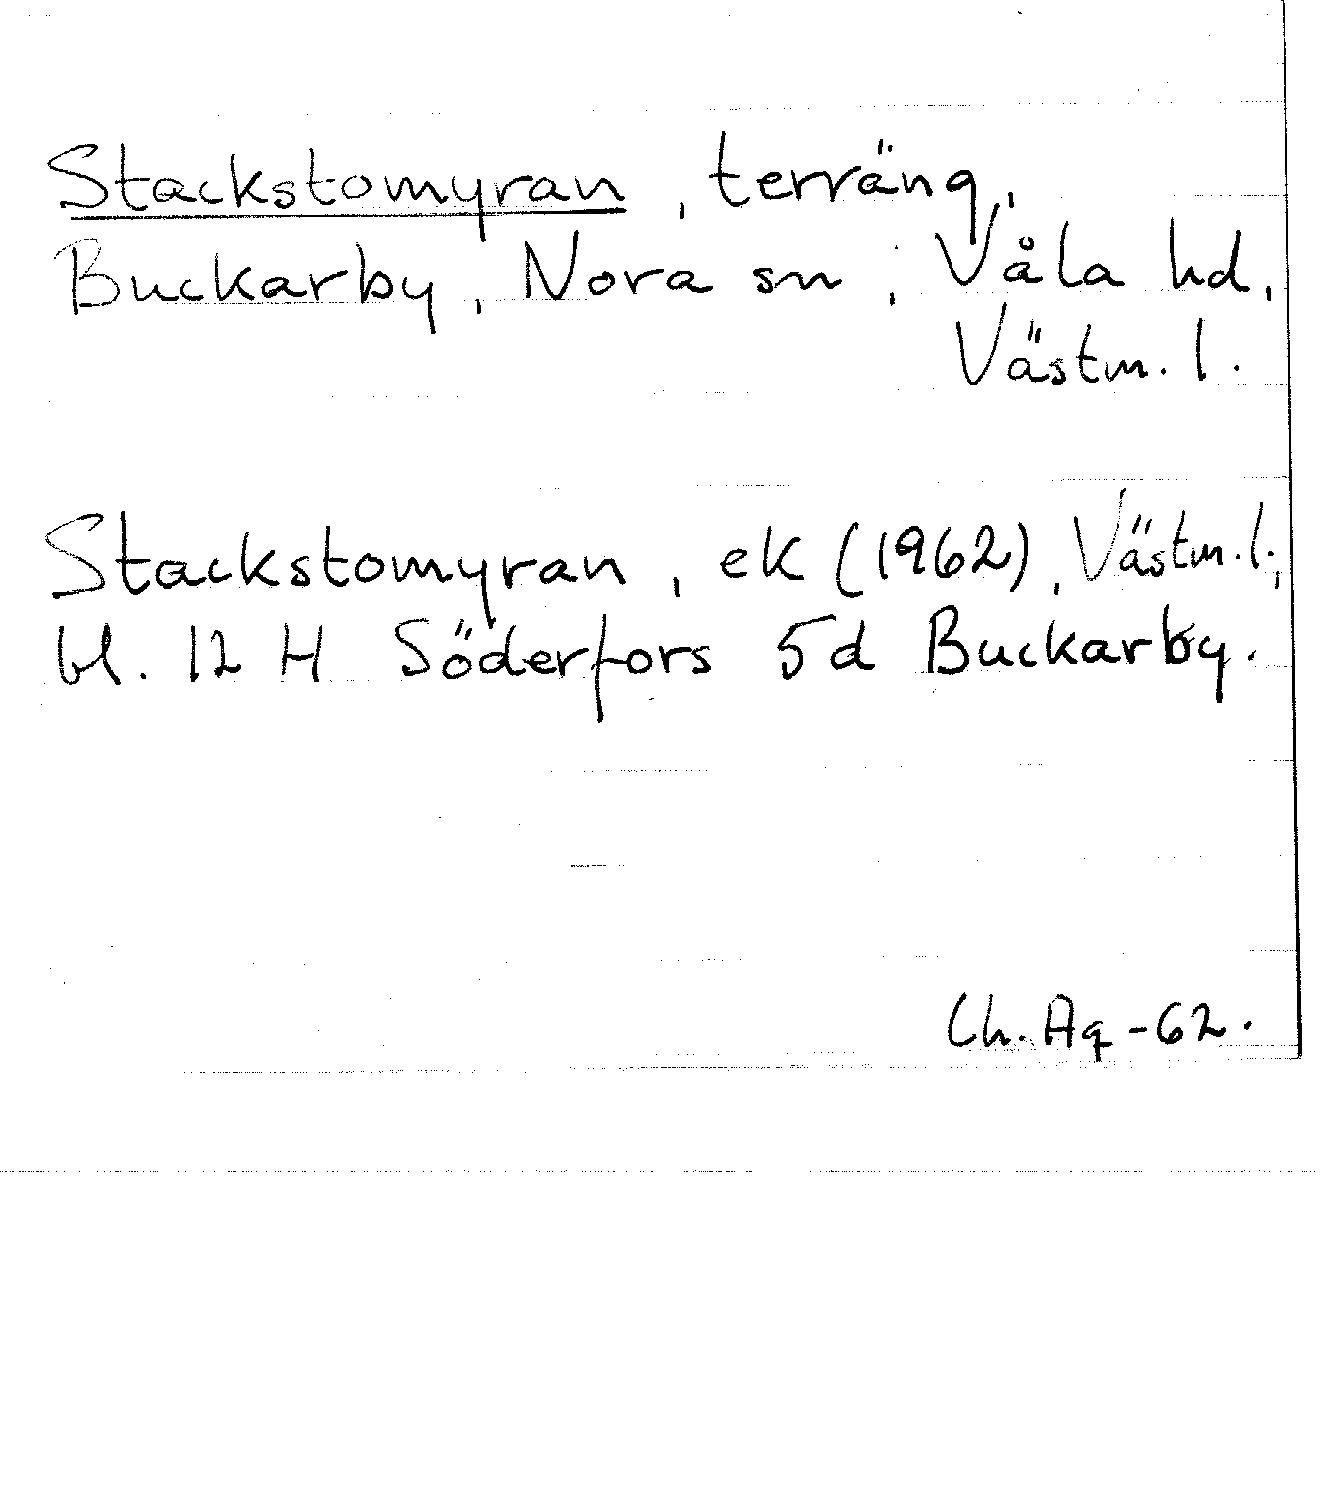 Stackstomyran, terräng,
Buckarby, Nora sn, Våla hd,
Västm. l.
Stackstomyran, ek (1962), Västm. l.,
bl. 12 H Söderfors 5d Buckarby.
Ch. Aq -62.